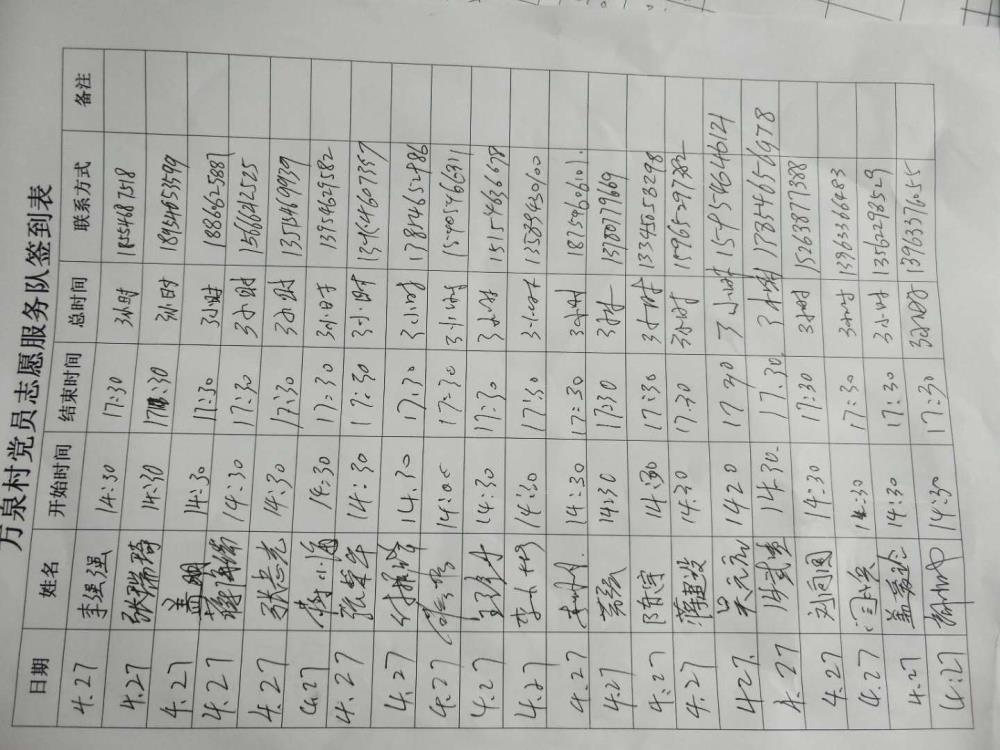 万泉村党员志愿服务队签到表
日期 姓名 开始时间 结束时间 总时间 联系方式 备注
4.27 李强强 14:30 17:30 3小时
4.27 张瑞琦 14:30 17:30 3小时 1845463599
4.27 14:30 17:30 3小时 18866625887
4.27 14:30 17:30 3小时 15666012525
4.27 张志光 14:30 17:30 3小时 13515469939
4.27 14:30 17:30 3小时 13954629582
4.27 14:30 17:30 3小时
4.27 14.30 17.30 3小时 17854652986
4.27 14:00 17:30 3小时 15405466911
4.27 14:30 17:30 3小时 15154636678
4.27 14:30 17:30 3小时 13589430100
4.27 14:30 17:30 3小时 18754606101.
4.27 14:30 17:30 3小时 13780779669
4.27 陈宇 14:30 17:30 3小时 13345053298
4.27 蒋建设 14.30 17.30 3小时
4.27. 吴元亮 1420 17 30 3小时 15954646121
4.27 14.30. 17.30. 3小时 17854656978
4.27 刘同国 14:30 17:30 3小时 15263877388
4.27 14:30 17:30 3小时 13963366483
4.27 14:30 17:30 3小时 1356298529
4.27 14:30 17:30 3小时 13963376055